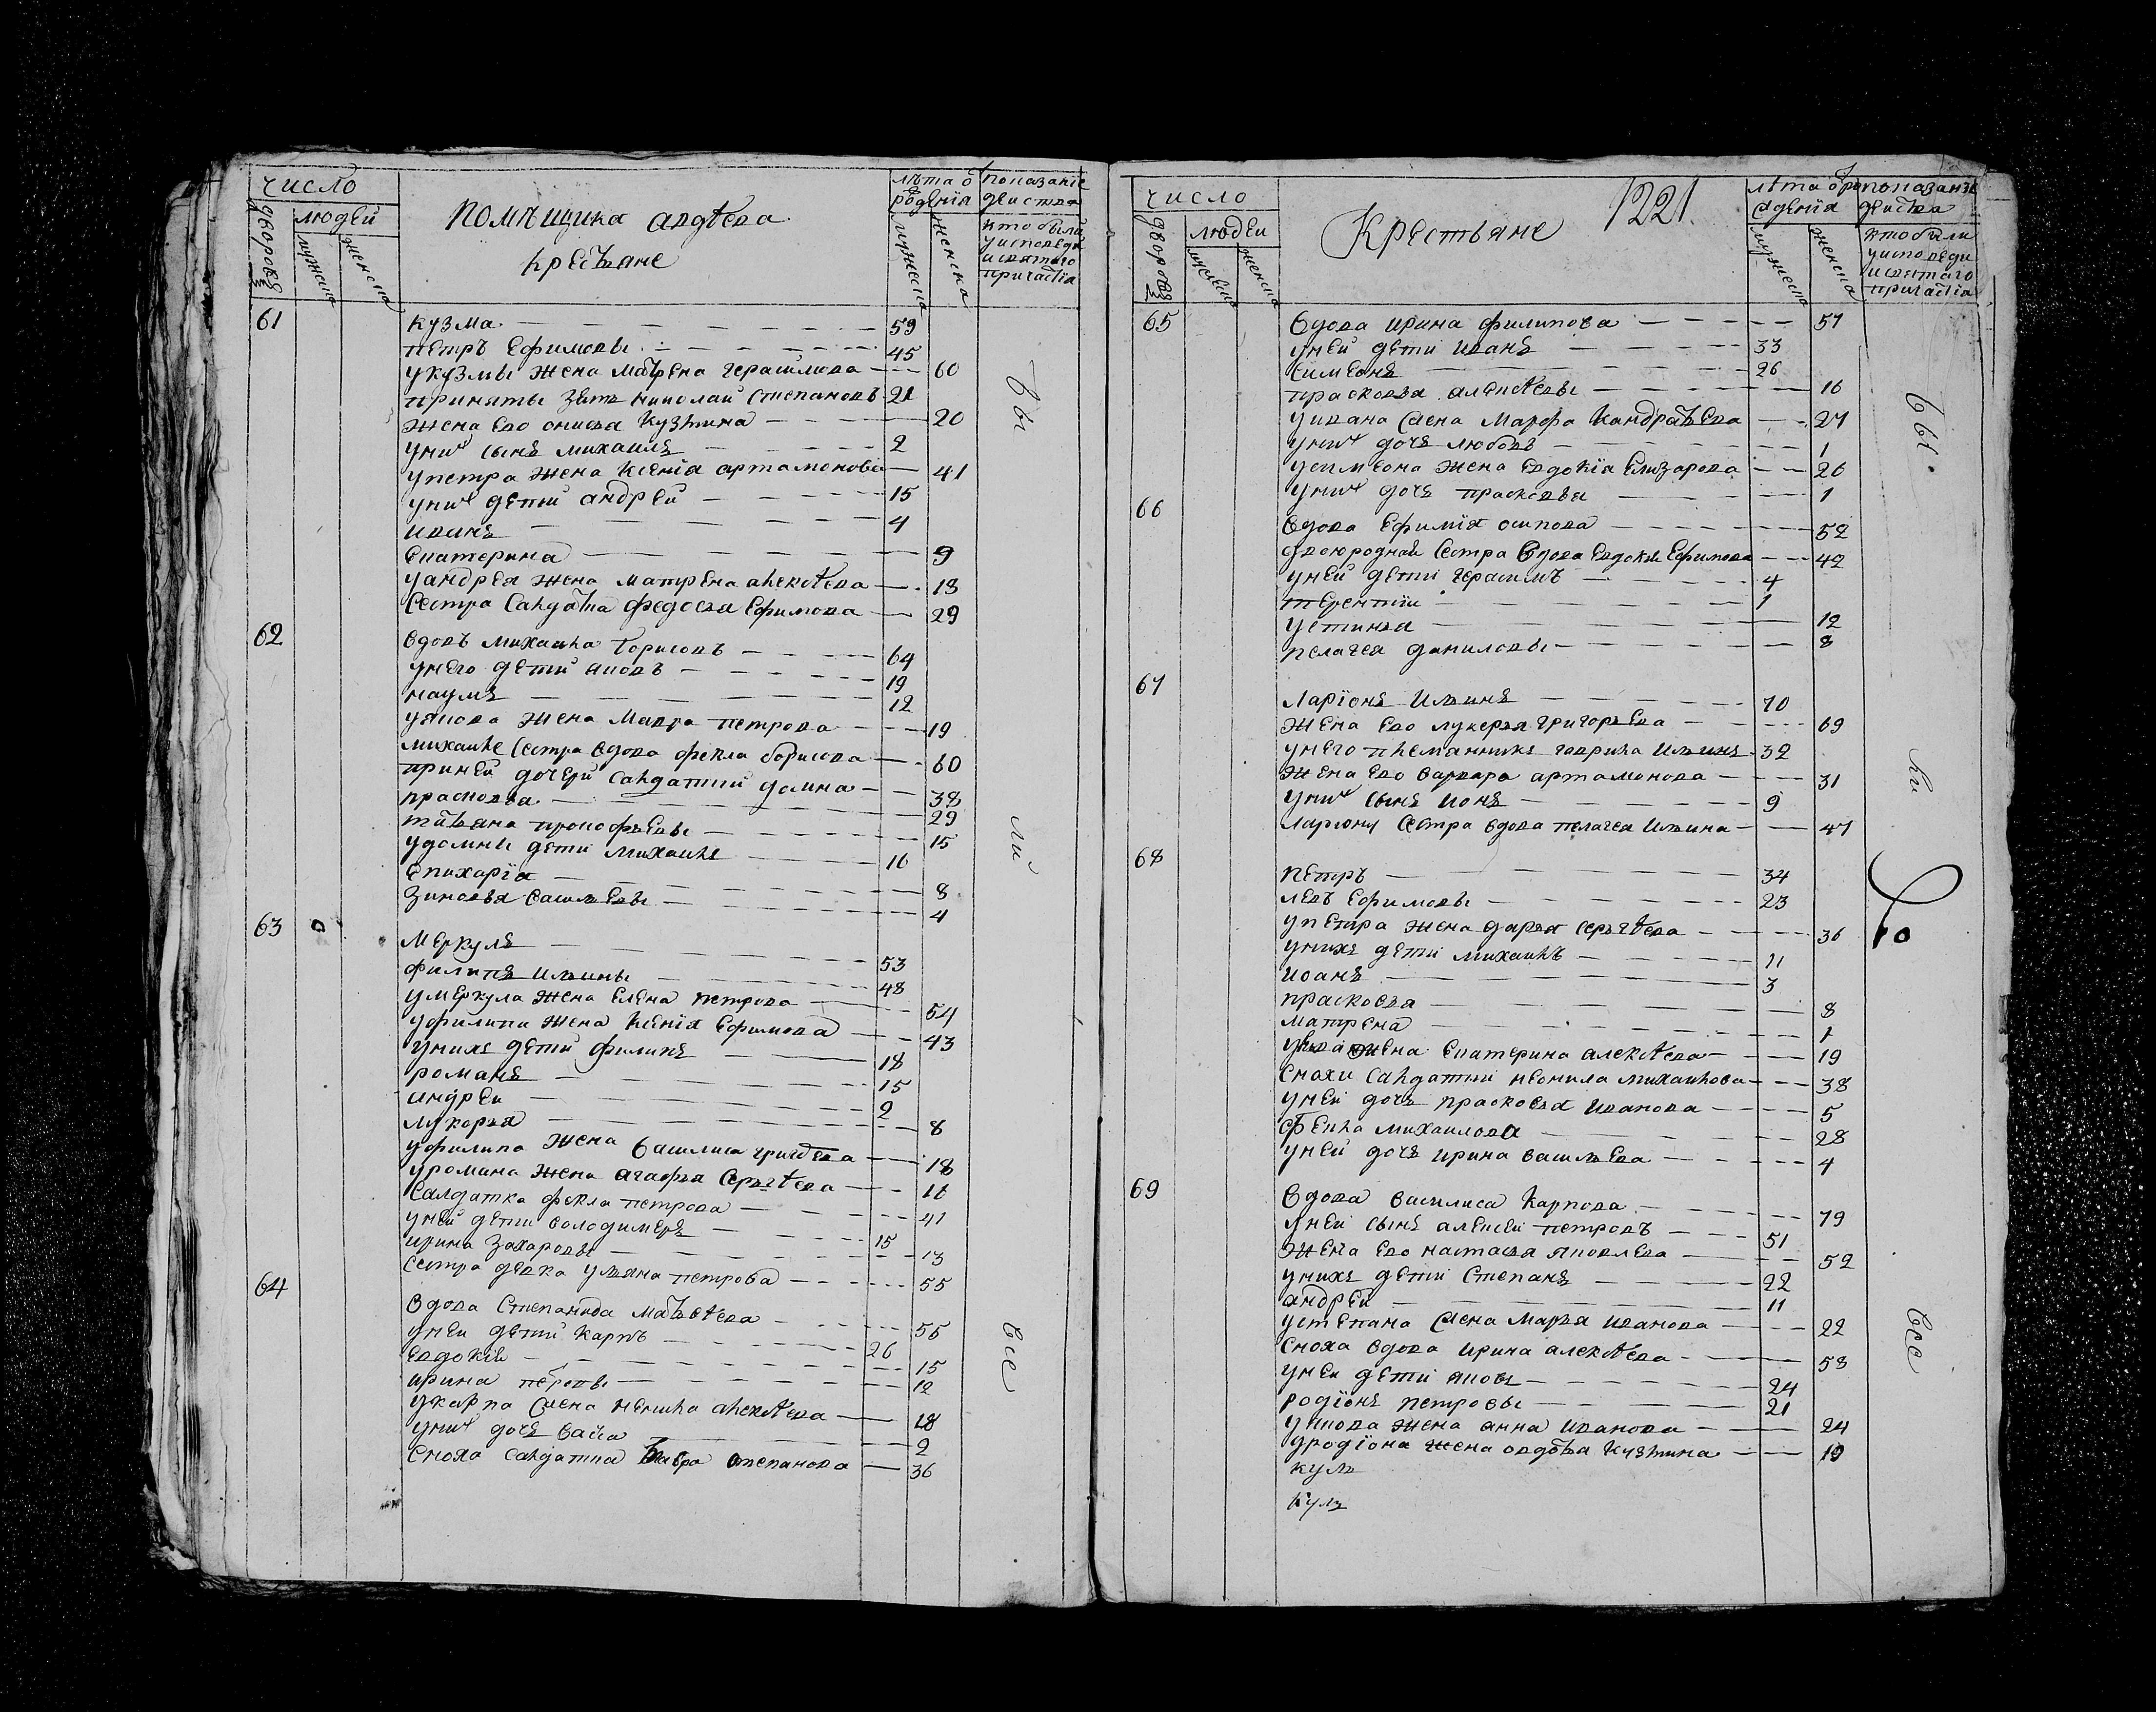 число
лѣта о рожденiя
показанiе действа
дворовъ
людей
мужеска
женска
помѣщика авдѣева
крестьяне
мужеска
женска
кто были у исповеди и святаго причастiя
61 кузма 59
петръ Ефимовы 45
у кузмы жена матрена герасимова 60
приняты зять николай степановъ 21
жена ево 20
у них сынъ михаилъ 2
у петра жена ксенiя артамонова 41
у них дети андрей 15
иванъ 4
Екатерина 9
у андрея жена матрена алексѣева 18
сестра салдатка федосья Ефимова 29
62 вдовъ михаила борисовъ 64
у него дети яковъ 19
наумъ 12
у якова жена мавра петрова 19
михаиле сестра вдова фекла борисова 60
при ней дочери салдатки домна 38
прасковья 29
татьяна прокофьевы 15
у домны дети михаиле 16
Епихарiя 8
зиновья васильевы 4
63 меркулъ 53
филипъ ильины 48
у меркула жена елена петрова 54
у филипа жена ксенiя Ефимова 43
у нихъ дети филипъ 18
романъ 15
андреи 2
лукерья 8
у филипа жена василиса 18
у романа жена агафья сергѣева 16
салдатка фекла петрова 41
у ней дети володимеръ 15
ирина захаровы 13
сестра девка ульяна петрова 55
64 вдова степанида матвѣева 55
у неи дети карпъ 26
Евдокiя 15
ирина петровы 12
у карпа жена ненила алексѣева 28
у них дочь васса 2
сноха салдатка мавра степанова 36
бы
ли
все
1221
число
Крестьяне
лѣта о рожденiя
показанiе действа
дворовъ
людеи
мужеска
женска
мужеска
женска
кто были у исповеди и святаго причастiя
65 вдова ирина филипова 57
у ней дети иванъ 33
симеонъ 26
прасковья алексѣевы 16
у ивана жена марфа кандратьева 27
у них дочь любовь 1
у симеона жена Евдокiя Елизарова 26
у них дочь прасковья 1
66 вдова Ефимiя осипова 52
двоюродная сестра вдова Евдокея Ефимова 42
у ней дети герасимъ 4
терентiи 1
устинья 12
пелагея даниловы 8
67 ларiонъ ильинъ 70
жена ево лукерья григорьева 69
у него племянникъ гаврила ильинъ 32
жена ево варвара артамонова 31
у них сынъ ионъ 9
ларiону сестра вдова пелагея ильина 47
68 петръ 34
левъ Ефимовы 23
у петра жена дарья сергѣева 36
у нихъ дети михаилъ 11
иоанъ 3
прасковья 8
матрена 1
у льва жена Екатерина алексѣева 19
снохи салдатки неонила михаилова 38
у ней дочь прасковья иванова 5
фекла михаилова 28
у ней дочь ирина васильева 4
69 вдова василиса карпова 79
у неи сынъ алексеи петровъ 51
жена ево настасья яковлева 52
у нихъ дети степанъ 22
андреи 11
у степана жена марья иванова 22
сноха вдова ирина алексѣева 53
у неи дети яковъ 24
родiонъ петровы 21
у якова жена анна иванова 24
у родiона жена авдотья кузмина 19
кузь
кузь
бы
ли
все